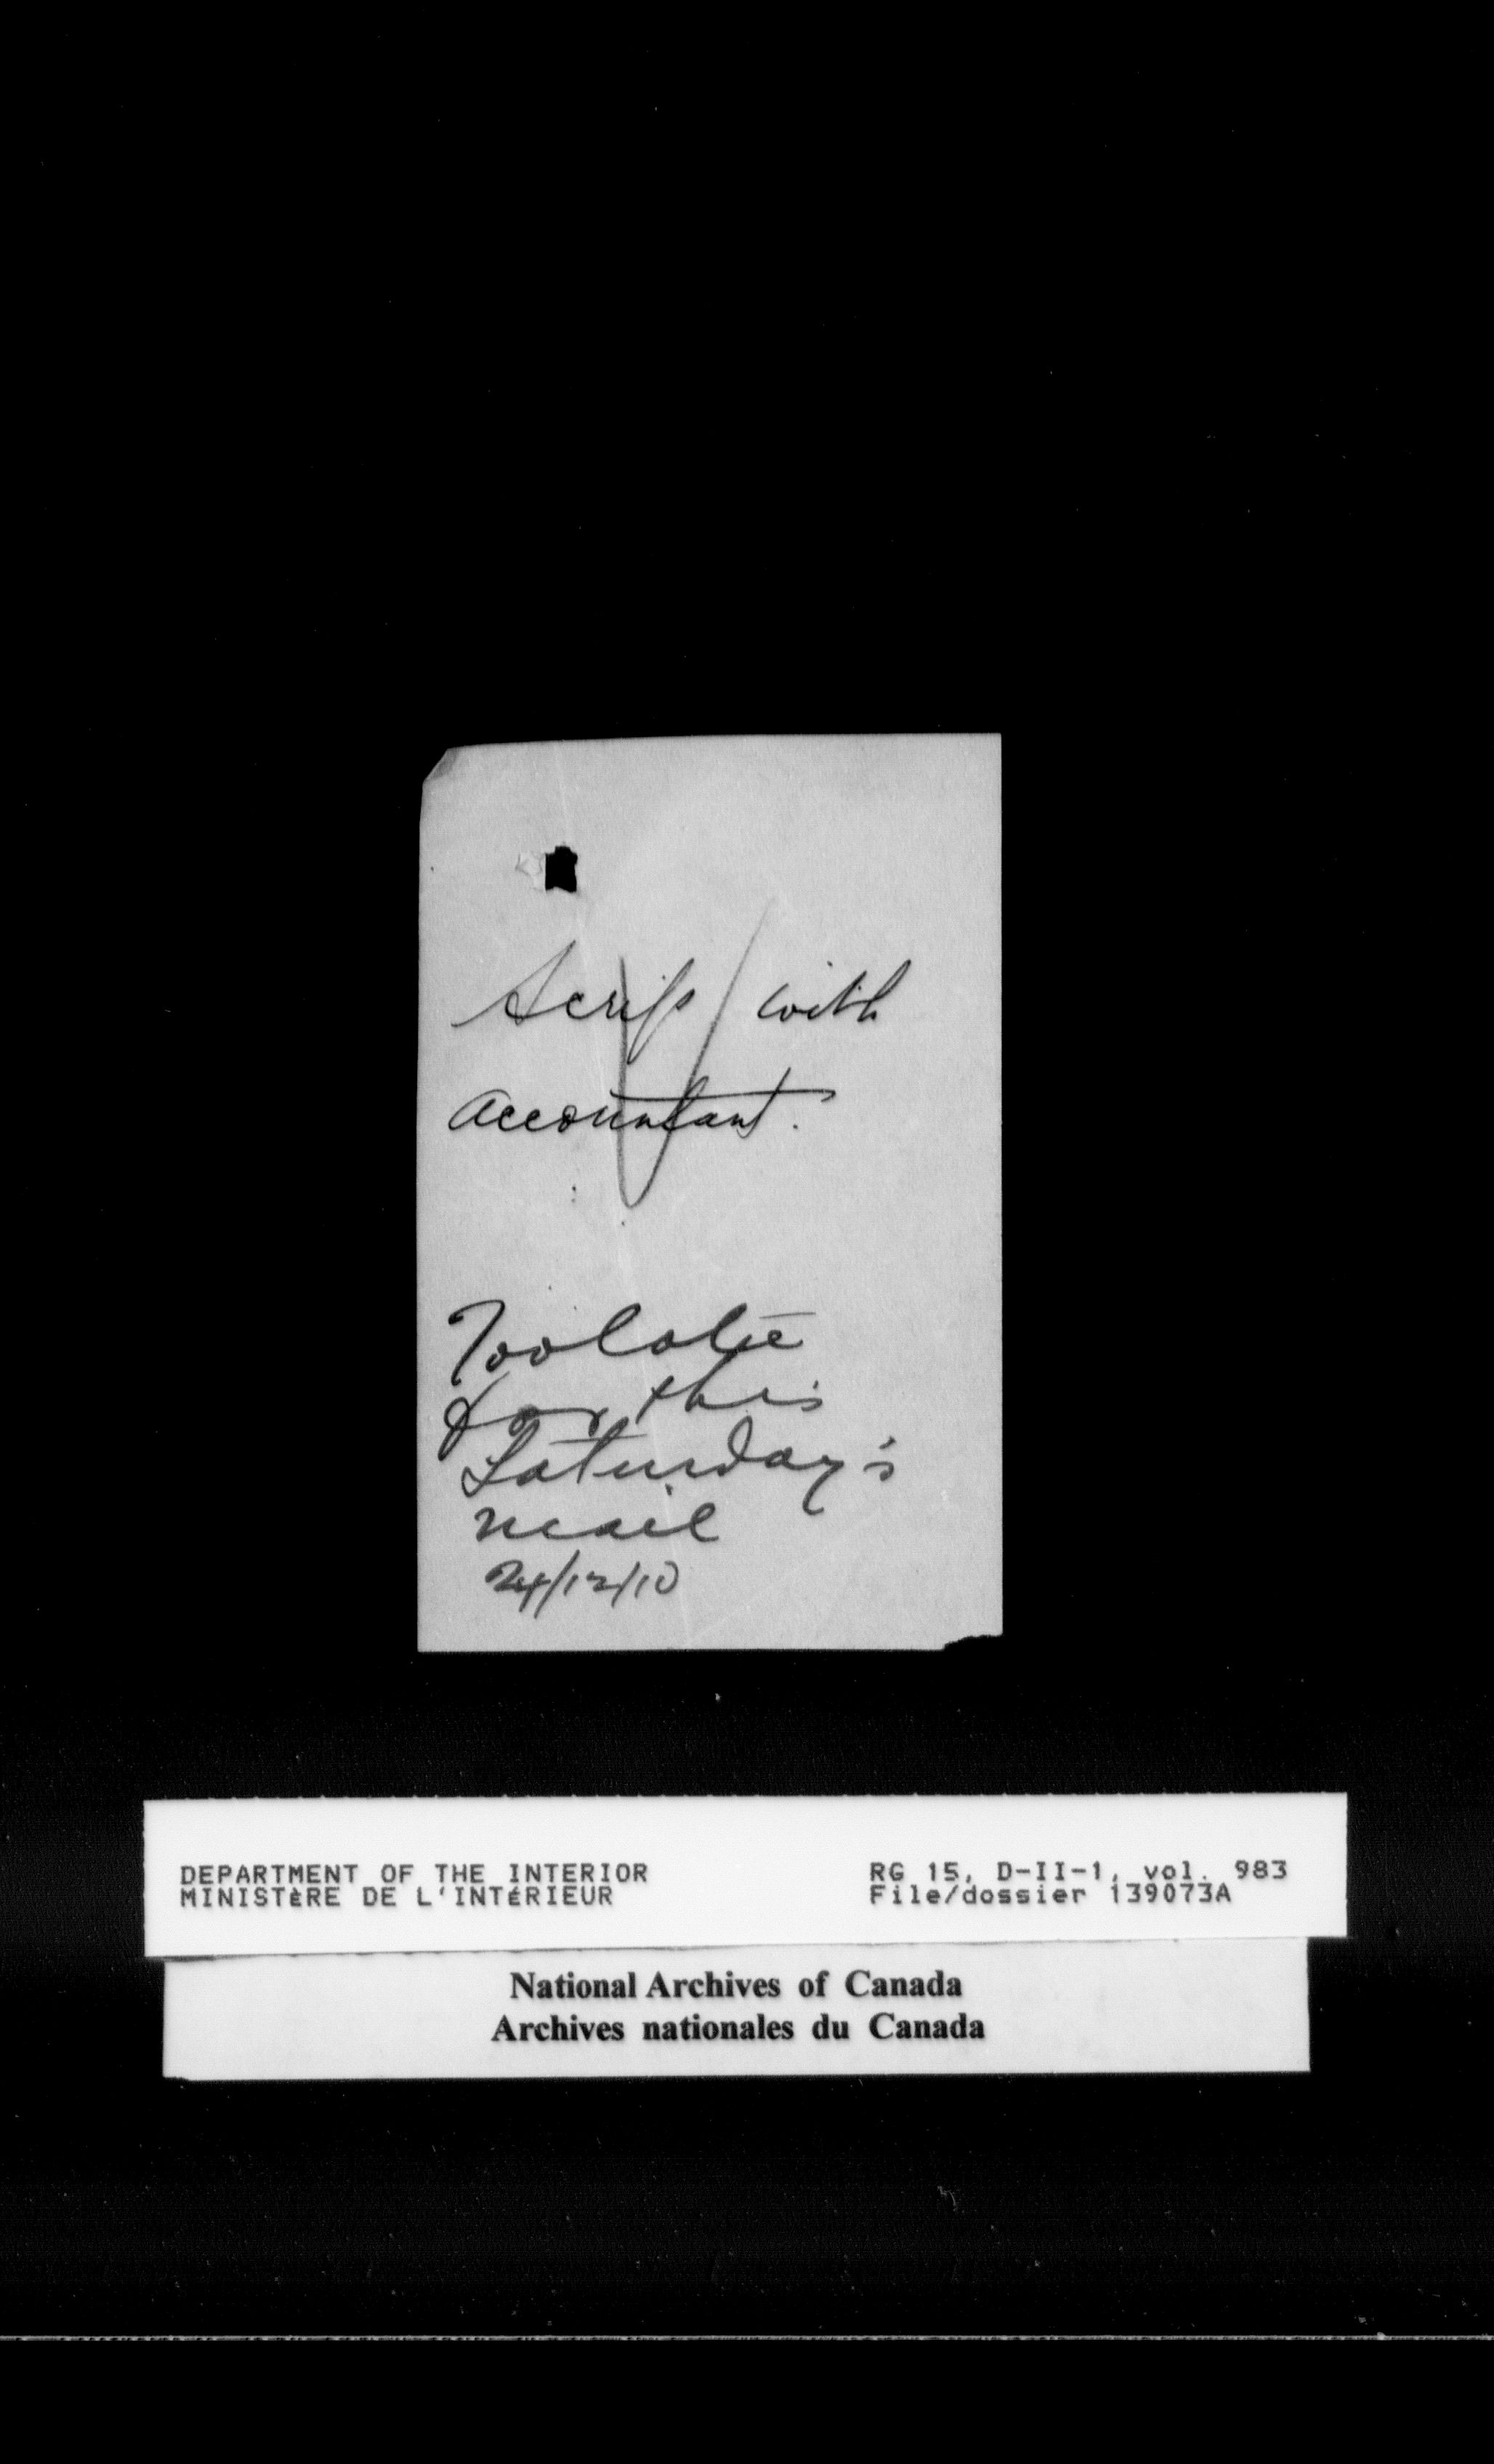 Scrip with
accountant.
Too late
for this
Saturday's
mail
24/12/10
DEPARTMENT OF THE INTERIOR
MINISTÈRE DE L'INTÉRIEUR
RG 15, D-II-1, vol. 983
File/dossier 139073A
National Archives of Canada
Archives nationales du Canada